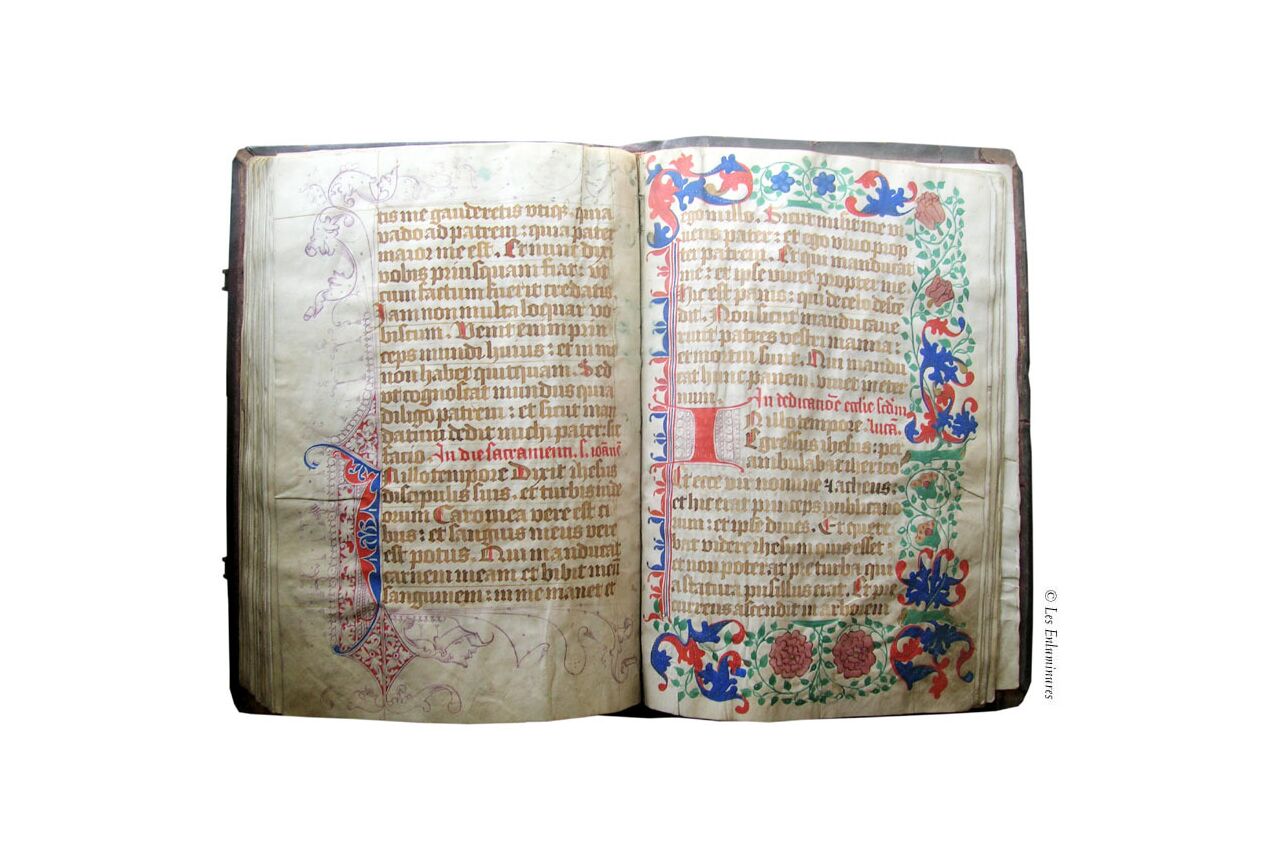 tis me gauderetis vtiqꝫ quia
vado ad patrem: quia pater
maior me est. Et nunc dixi
vobis priusquam fiat: vt
cum factum fuerit credatis.
Iam non multa loquar vo
biscum. Venit enim prin
ceps mundi huius: et in me
non habet quitquam. Sed
vt cognoscat mundus quia
diligo patrem: et sicut man
datum dedit michi pater: sic
facio. In die sacramenti. s. ioãnē
In illo tempore Dixit ihesus
discipulis suis. et turbis iude
orum Caro mea vere est ci
bus: et sanguis meus vere
est potus. Qui manducat
carnem meam et bibit meū
sanguinem: in me manet et
ego in illo. Sicut misit me vi
uens pater: et ego viuo prop
ter patrem. Et qui manducat
me: et ipse viuet propter me
Hic est panis: qui de celo desce
dit. Non sicut manducaue
runt patres vestri manna:
et mortui sunt. Qui mandu
cat hunc panem. viuet in eter
num. In dedicatiōe ecclīe scdm
Lucā.
In illo tempore
Egressus ihesus: per
ambulabat iherico
Et ecce vir nomine zacheus:
et hic erat princeps publicano
rum: et ipse diues. Et quere
bat videre ihesum quis esset:
et non poterat pre turba qui
a statura pusillus erat. Et pre
currens ascendit in arborem
© Les Enluminures